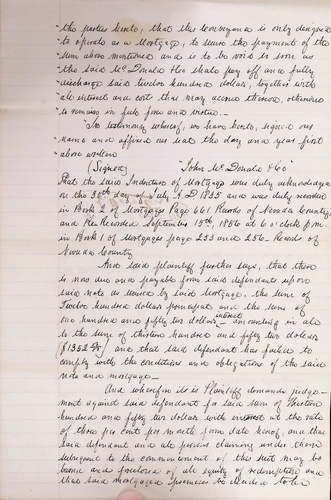 "the parties hereto, that this Conveyance is only designed
"to operate as a Mortgage, to secure the payment of the
"sum above mentioned and is to be void as soon as
"the said McDonald &Co shall pay off and fully
"discharge said twelve hundred dollars, together with
"all interest and cost that may accrue thereon, otherwise
"to remain in full force and virtue.—
"In testimony whereof, we have hereto, signed our
"name and affixed our seal the day and year first
"above written
(Signed) "John McDonald &Co"
That the said Indenture of Mortgage was duly acknowledged
on the 30th day of July A.D 1855 and was duly recorded
in Book 2 of Mortgages Page 661 Records of Nevada County,
and Re Recorded September 15th, 1856 at 6 o'clock p.m.
in Book 1 of Mortgages page 255 and 256. Records of
Nevada County
And said plaintiff further says, that there
is now due and payable from said defendants upon
said note as secured by said Mortgage, the sum of
Twelve hundred dollars principal and the sum of
one hundred and fifty two dollars interest amounting in all
to the sum of thirteen hundred and fifty two dollars
($1352 ) and that said defendant has failed to
comply with the conditions and obligations of the said
note and mortgage.
And wherefore the Plaintiff demands judge-
ment against said defendant for said sum of Thirteen
hundred and fifty two dollars with interest at the rate
of three per cent per month from date hereof, and that
said defendant and all persons claiming under them
subsequent to the commencement of this suit may be
barred and foreclosed of all equity of redemption and
that said mortgaged premises be decreed to be